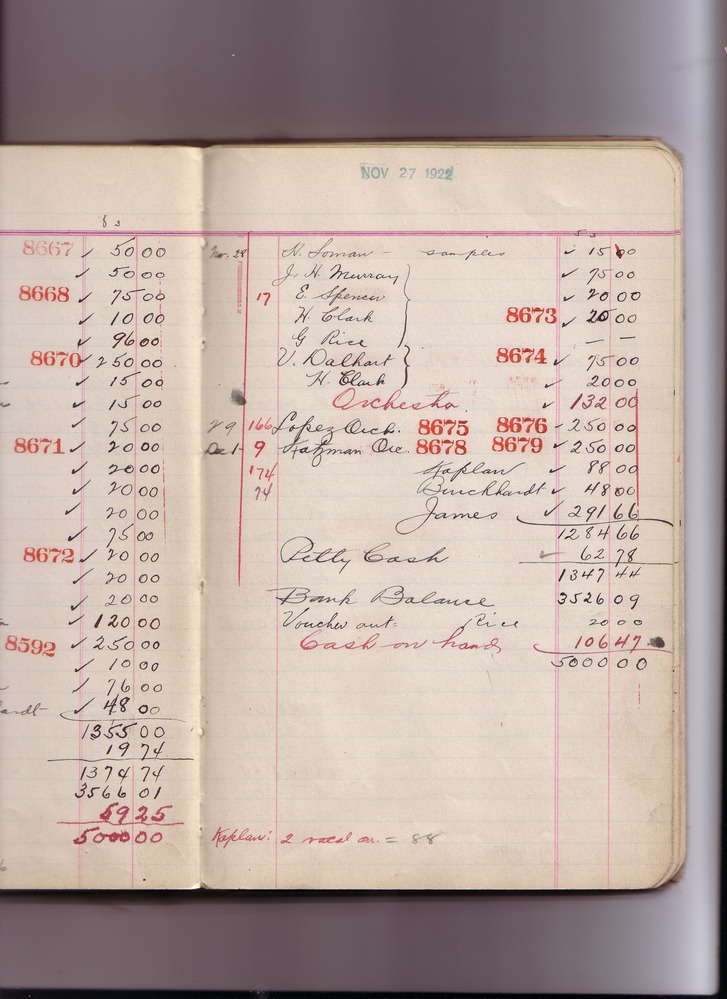 NOV 27 1922
8 s
8667 ✓ 50 00
✓ 50 00
8668 ✓ 75 00
✓ 10 00
✓ 96 00
8670 ✓ 250 00
✓ 15 00
✓ 15 00
✓ 75 00
8671 ✓ 20 00
✓ 20 00
✓ 20 00
✓ 20 00
✓ 75 00
8672 ✓ 20 00
✓ 20 00
✓ 20 00
✓ 120 00
8592 ✓ 250 00
✓ 10 00
✓ 76 00
ardt ✓ 48 00
1355 00
19 74
1374 74
3566 01
59 25
5000 00
5 s
Nov. 28 H. Loman - samples ✓ 15 00
J. H. Murray ✓ 75 00
17 E. Spencer ✓ 20 00
H. Clark 8673 ✓ 20 00
G Rice — —
V. Dalhart 8674 ✓ 75 00
H. Clark ✓ 20 00
Orchestra. ✓ 132 00
29 166 Lopez Orch. 8675 8676 ✓ 250 00
Dec 1 - 9 Katzman Orc. 8678 8679 ✓ 250 00
174 Kaplan ✓ 88 00
74 Burckhardt ✓ 48 00
James ✓ 291 66
1284 66
Petty Cash ✓ 62 78
1347 44
Bank Balance 3526 09
Voucher out: Rice 20 00
Cash on hand 106 47
5000 00
Kaplan: 2 vocal arr. = 88